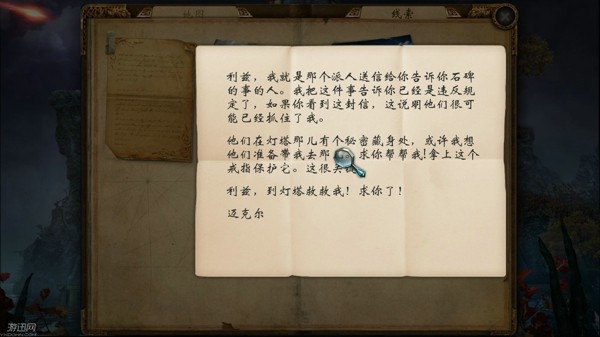 线索
利兹，我就是那个派人送信给你告诉你石碑
的事的人。我把这件事告诉你已经是违反规
定了，如果你看到这封信，这说明他们很可
能已经抓住了我。
他们在灯塔那儿有个秘密藏身处，或许我想
他们准备带我去那 。求你帮帮我!拿上这个
戒指保护它。这很关
利兹，到灯塔救救我！求你了！
迈克尔
游迅网